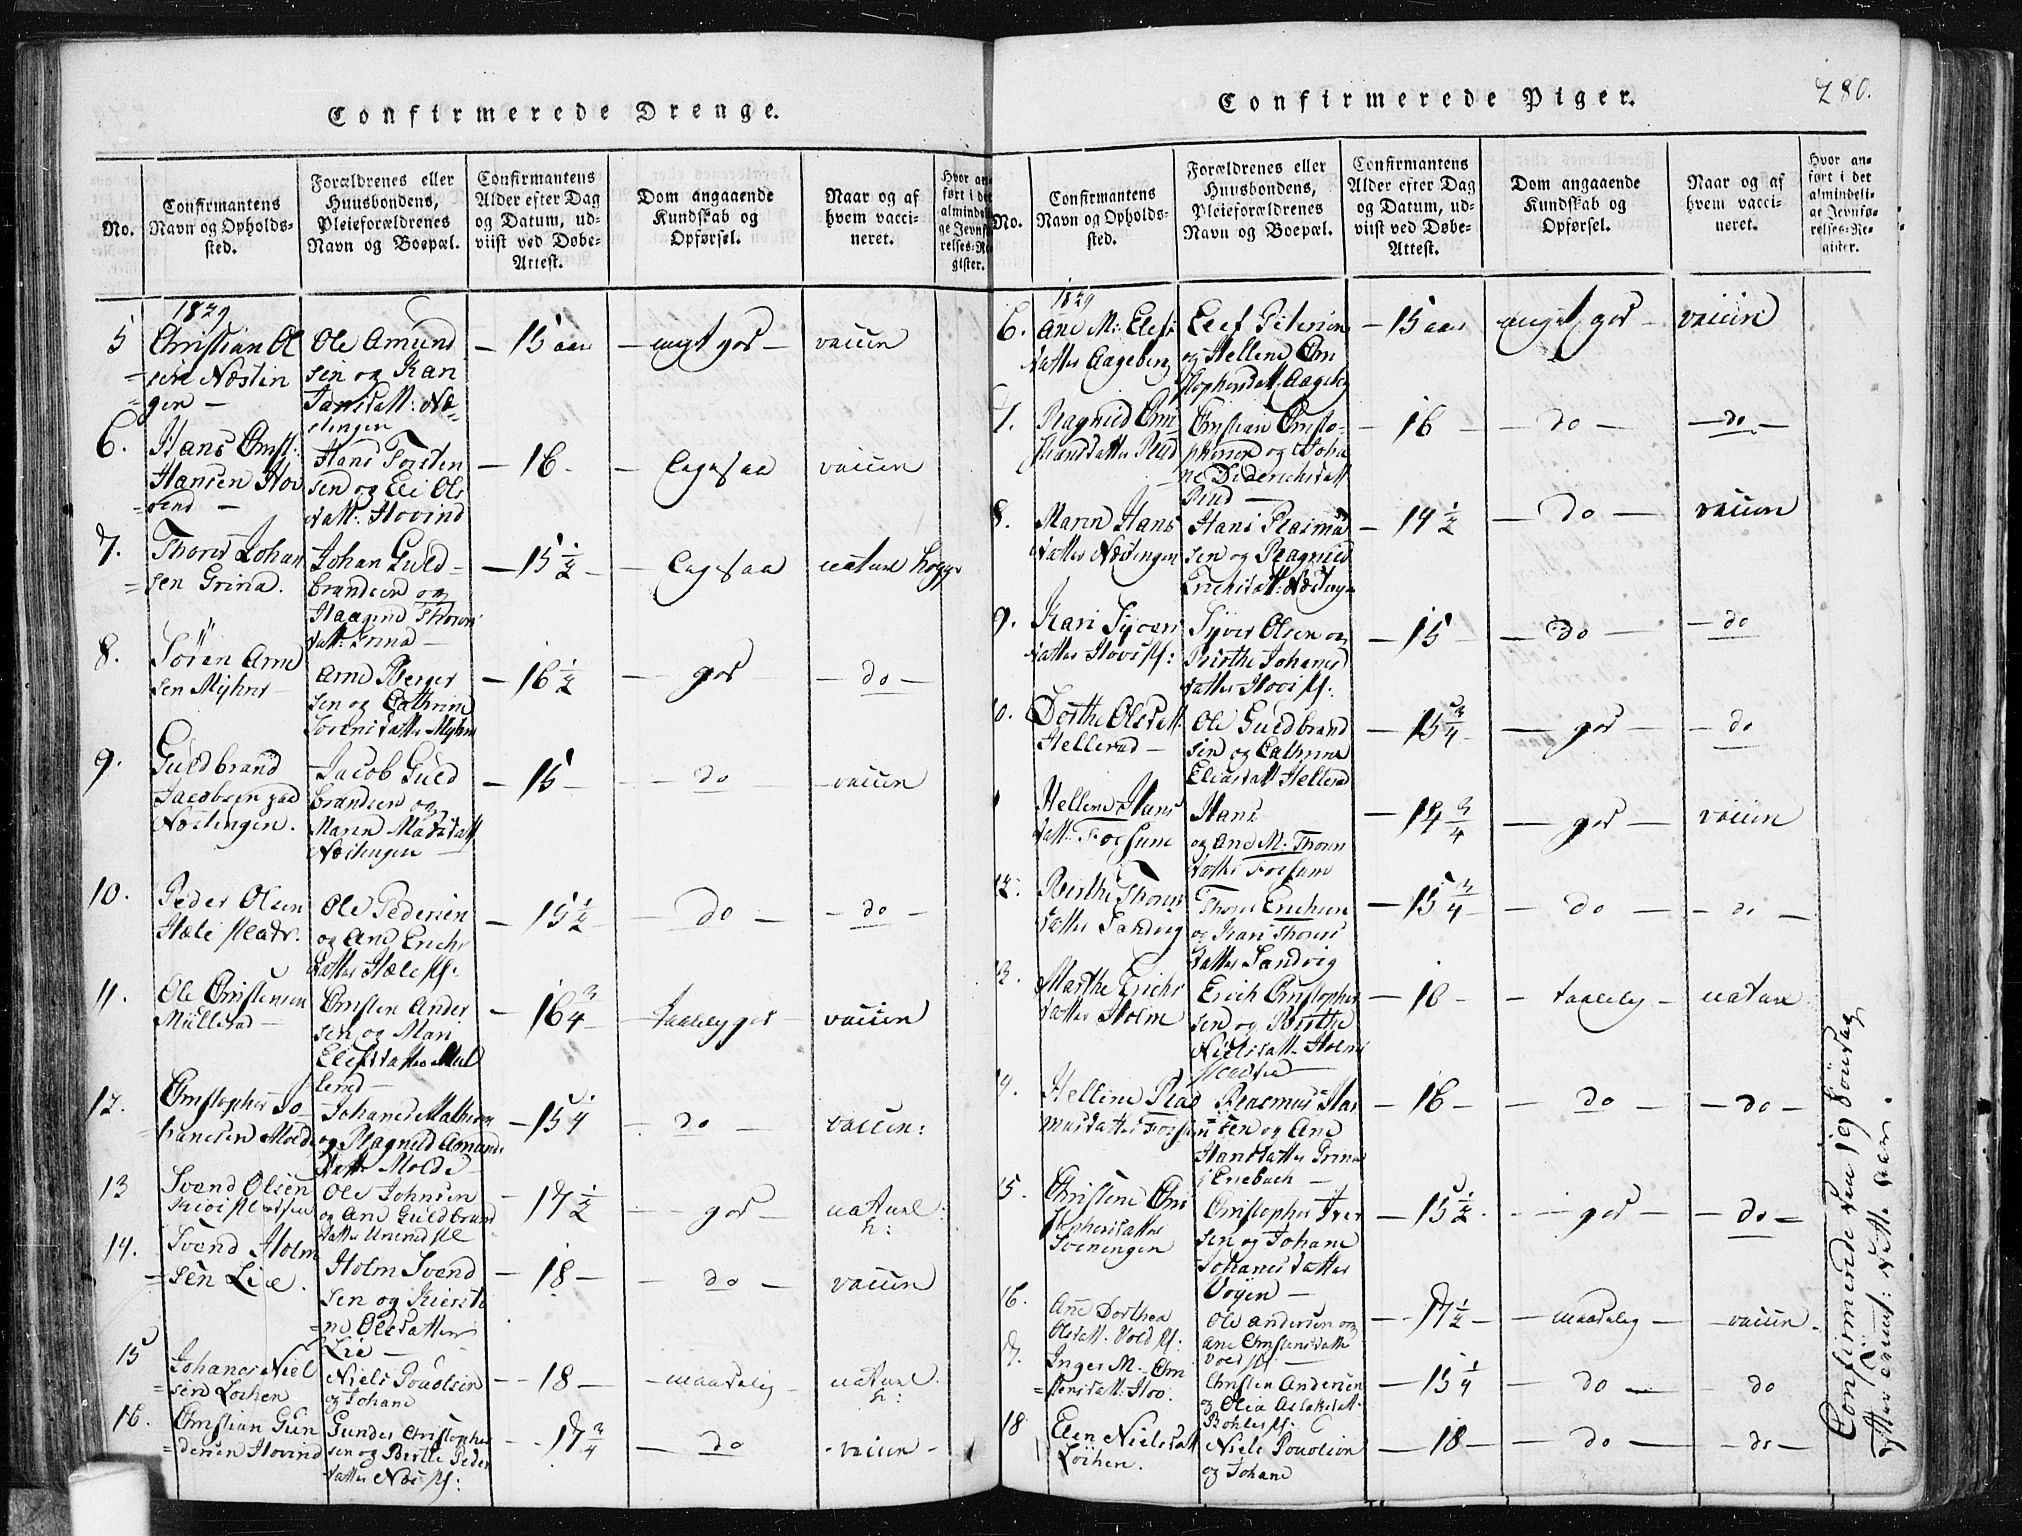 Confirmerede Drenge.
No.
Confirmantens
Navn og Opholds-
sted.
Forældrenes eller
Huusbondens,
Pleieforældrenes
Navn og Boepæl.
Confirmantens
Alder efter Dag
og Datum, ud-
viist ved Døbe-
Attest.
Dom angaaende
Kundskab og
Opførsel.
Naar og af
hvem vacci-
neret.
Hvor an-
ført i det
almindeli-
ge Jevnfø-
relses-Re-
gister.
1829
5
Christian Ol
=sen Næstin
=gen —
Ole Amund
sen og Kari
Jansdatt: Næ-
stingen
— 15 aar
— megt god —
vaccin
6.
Hans Christ:
Hansen Hov
=vind —
Hans Torsten
sen og Eli Ols
datt: Hovind
— 16 —
— Ligesaa
vaccin
7.
Thorer Johan
=sen Grina.
Johan Guld-
brandsen og
Haagine Thorers
datt: Grina —
— 15 1/2 —
— Ligesaa
naturl kopper
8.
Søren Arne
sen Myhrer —
Arne Berger
sen og Cathrine
Sørensdatter Myhre
— 16 1/2
— god —
— do —
9.
Guldbrand
Jacobsen paa
Næstingen.
Jacob Guld
brandsen og
Maren Madsdatt
Næstingen —
— 15 —
— do
— vaccin
10.
Peder Olsen
Hæle
Ole Pedersen
og Ane Erichs
datter Hæle
— 15 1/2
— do —
— do —
11.
Ole Christensen
Müllerud —
Christen Ander
sen og Mari
Elefsdatter Mül
lerud —
— 16 3/4 —
— taalelig god —
vaccin
12.
Christopher Jo
=hannesen Molde
Johanes Mathiesen
og Ragnild Amunds
datt: Molde
— 15 1/4
— do —
vaccin:
13
Svend Olsen
Ole Johnsen
og Ane Guldbrands
datter
— 17 1/2
— god —
naturl:
k:
14.
Svend Holm
=sen Lie.
Holm Svend
sen og Kiersti
=ne Olesdatter
Lie —
— 18 —
— do —
vaccin
15
Johanes Niel
=sen Lochen
Niels Poulsen
og Johane
— 18 —
— maadelig —
naturl
k:
16.
Christian Gun
=dersen Hovind
Gunder Christopher
sen og Berthe Peders
datter Næs
— 17 3/4
— do
— vaccin —
Confirmerede Piger.
280.
No.
Confirmantens
Navn og Opholds-
sted.
Forældrenes eller
Huusbondens,
Pleieforældrenes
Navn og Boepæl.
Confirmantens
Alder efter Dag
og Datum, ud-
viist ved Døbe-
Attest.
Dom angaaende
Kundskab og
Opførsel.
Naar og af
hvem vacci-
neret.
Hvor an-
ført i det
almindeli-
ge Jevnfø-
relses-Re-
gister.
1829
6.
Ane M: Elefs
datter Aageberg
Elef Pedersen
og Hellene Chri
stophersdatt: Aageberg
— 15 aar
meget god —
vaccin
7.
Ragnild Chri
stiansdatter Rud
Christian Christo-
phersen og Joha
ne Diderichsdatt
Rud —
— 16 —
— do —
— do —
8.
Maren Hans
datter Næstingen
Hans Rasmus
sen og Ragnild
Erichsdatt: Næstingen
— 14 1/2
— do —
vaccin
9.
Kari Syvers
datter Hovi
Syver Olsen og
Berthe Johanes
datter Hovi
— 15 —
— do —
— do
10.
Dorthe Olsdatt:
Hellerud —
Ole Guldbrand
sen og Cathrine
Eliasdatt Hellerud
— 15 3/4 —
— god —
— do
Hellene Hans
datt: Fossum
Hans
og Ane M: Thorers
datter Fossum
— 14 3/4
— god —
vaccin
12.
Berthe Thorers
datter Sandvig
Thorer Erichsen
og Kari Thorers
datter Sandvig
— 15 3/4
— do —
— do —
13.
Marthe Erichs
datter Holm
Erich Christopher
sen og Berthe
Nielsdatt: Holm
— 16 —
— taalelig —
naturl
14.
Hellene Ras
musdatter Fossum
Rasmus Han
sen og Ane
Hansdatter Grina
i Enebach —
— 16 —
— do —
— do —
15.
Christine Chri
stophersdatter
Sveningen
Christopher Iver
sen og Johane
Johanesdatter
Vøyen —
— 15 1/2 —
— god —
— do —
16.
Ane Dorthea
Olsdatt: Vold
Ole Andersen og
Ane Christensdatt
Vold
— 17 1/2
— maadelig
— vaccin
17.
Inger M. Chri
=stensdatt: Hov.
Christen Andersen
og Olia Aslaksdatt.
Bøhler
— 15 1/4
— do —
— do
18
Elen Nielsdatt
Lochen.
Niels Poulsen
og Johane
— 18 —
— do —
— do —
Confirmerede den 19 Søndag
efter Trinit: dette Aar.